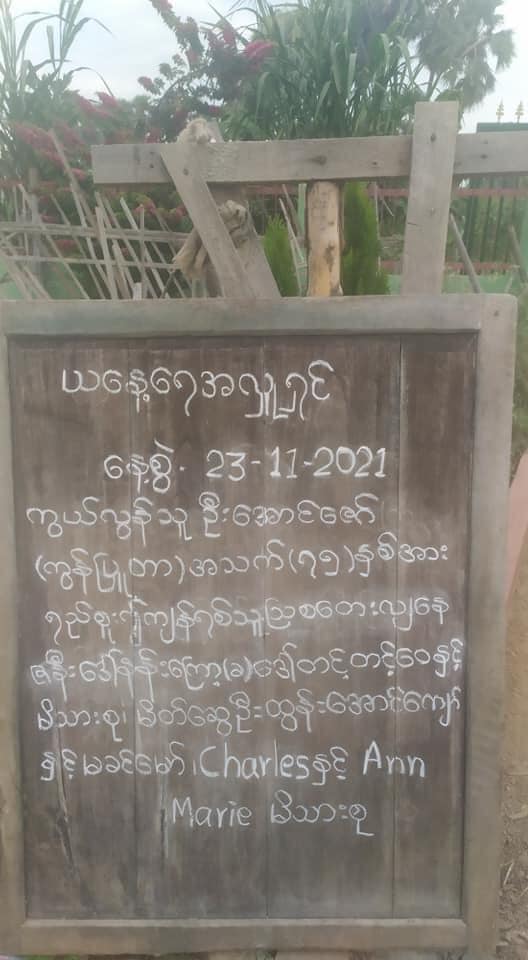 ယနေ့ရေအလှူရှင်
နေ့စွဲ. 23-11-2021
ကွယ်လွန်သူ ဦးအောင်ဇော်
(ကွန်ပြူတာ) အသက်(၇၅)နှစ်အား
ရည်စူး၍ကျန်ရစ်သူ
ဇနီးဒေါ်နန်းကြော့(ခ)ဒေါ်တင့်တင့်ဝေနှင့်
မိသားစု၊ မိတ်ဆွေဦးထွန်းအောင်ကျော်
နှင့်မခင်မော်၊ Charlesနှင့် Ann
Marie မိသားစု